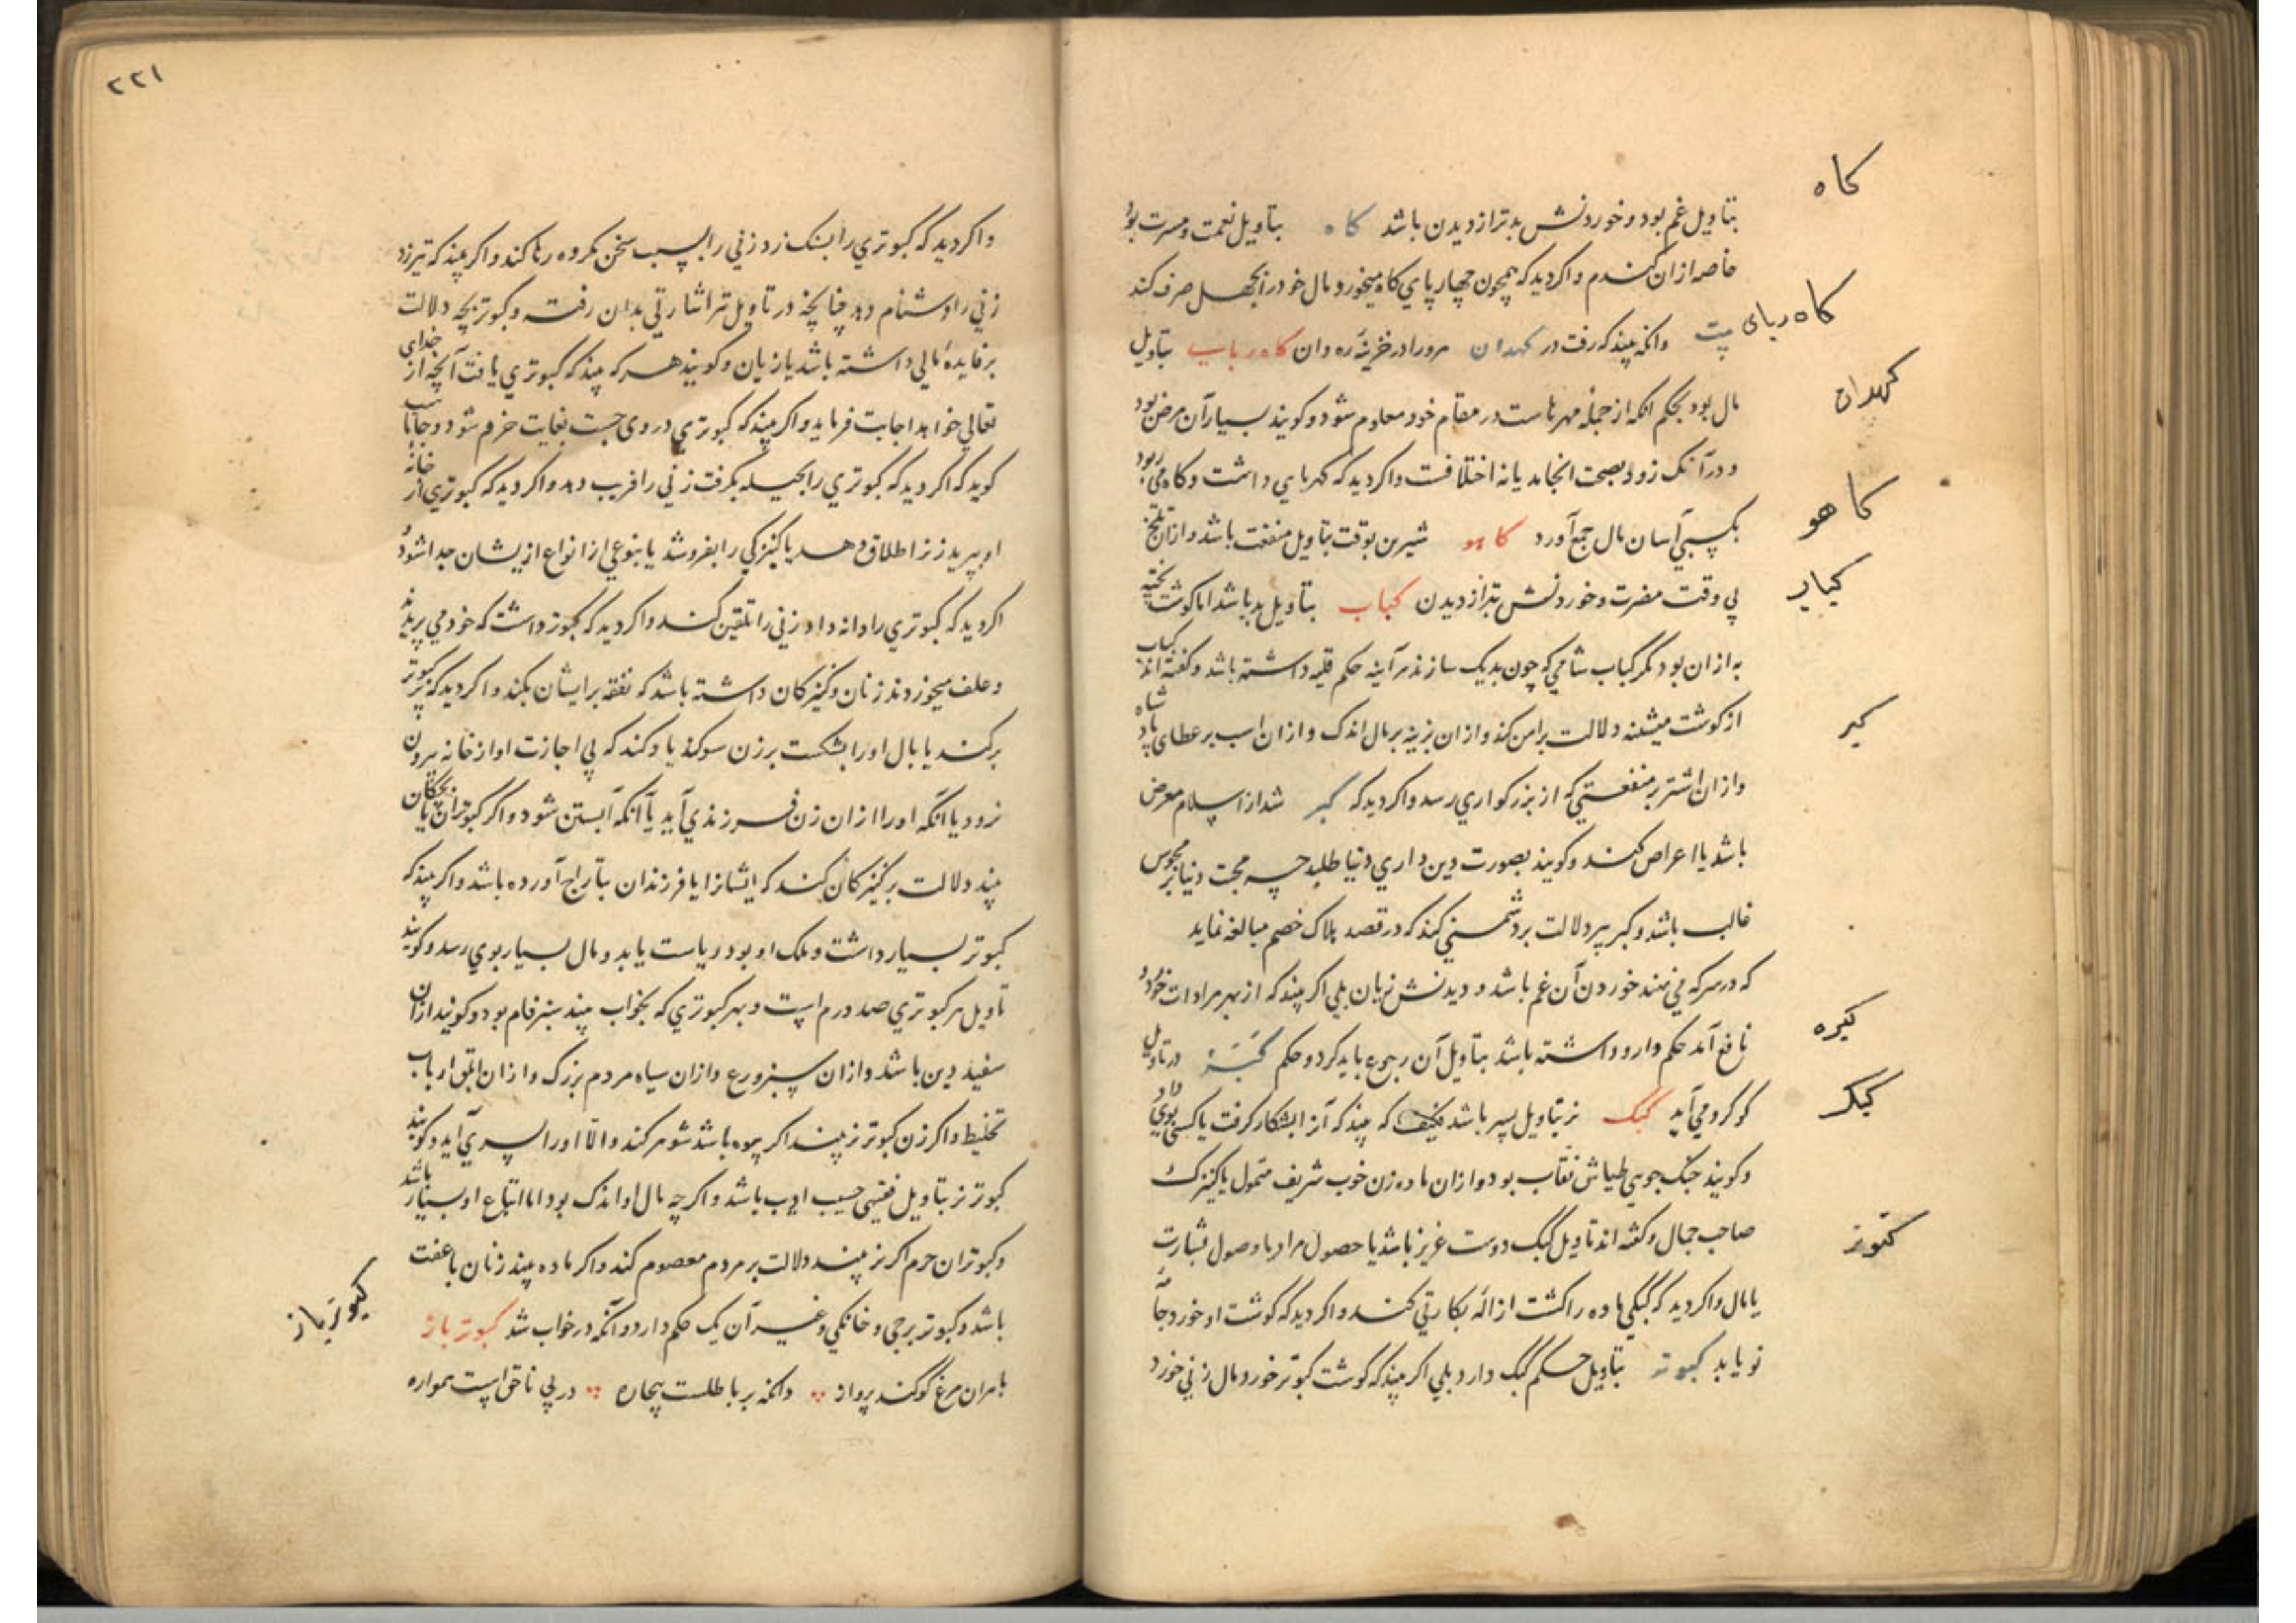 کاه
بتاویل غم بود و خوردنش بدتر از دیدن باشد کاه بتاویل نعمت و مسرت بود
خاصه ازان کندم و اکر دید که همچون چهارپای کاه میخورد مال خود را بجهل صرف کند
کاه ربای
وانکه بیند که رفت در کهدان مرورا در خزینه ره دان کاه ربای بتاویل
کهدان
مال بود بحکم انکه از جمله مهرهاست در مقام خود معلوم شود و کویند بسیار آن مرض بود
و درآنک زود بصحت انجامد یا نه اختلافست و اکر دید که کهربایی داشت و کاه می ربود
کاهو
بکسبی آسان مال جمع آورد کاهو شیرین بوقت بتاویل منفعت باشد و ازان تلخ
کباب
بی وقت مضرت و خوردنش بتر از دیدن کباب بتاویل بد باشد اما کوشت پخته
به ازان بود مکر کباب شامی که چون بدیک سازند هرآینه حکم قلیه داشته باشد و کفته اند کباب
کبر
از کوشت میشینه دلالت بر امن کند و ازان بزینه بر مال اندک و ازان اسب بر عطای پادشاه
و ازان اشتر بر منفعتی که از بزرکواری رسد و اکر دید که کبر شد از اسلام معرض
باشد یا اعراض کند و کویند بصورت دین داری دنیا طلبد چه محبت دنیا بر مجوس
غالب باشد و کبر پیر دلالت بر دشمنی کند که در قصد هلاک خصم مبالغه نماید
که در سرکه می نهند خوردن آن غم باشد و دیدنش زیان بلی اکر بیند که از بهر مراوات خورد
کبره
نافع آمد حکم دارو داشته باشد بتاویل آن رجوع باید کرد و حکم کبره در تاویل
کبک
کوکرد می آید کبک نر بتاویل پسر باشد که بیند که آنرا بشکار کرفت یا کسی بوی داد
و کویند جنک جوی طیاش نقاب بود و ازان ماده زن خوب شریف متمول یا کنیزک
کبوتر
صاحب جمال و کفته اند تاویل کبک دوست عزیز باشد یا حصول مراد یا وصول بشارت
یا مال و اکر دید که کبکی ماده را کشت ازاله بکارتی کند و اکر دید که کوشت او خورد جامه
نو یابد کبوتر بتاویل حکم کبک دارد بلی اکر بیند که کوشت کبوتر خورد مال زنی خورد
۲۲۱
و اکر دید که کبوتری را بسنک زد زنی را بسبب سخن مکروه رها کند و اکر بیند که تیر زد
زنی را دشنام دهد چنانچه در تاویل تیر اشارتی بدان رفت و کبوتر بچه دلالت
بر فایده مالی داشته باشد یا زیان و کویند هر که بیند که کبوتری یافت آنچه از خدای
تعالی خواهد اجابت فرماید و اکر بیند که کبوتری در وی جست بغایت خرم شود و جاماسب
کوید که اکر دید که کبوتری را بحیله بکرفت زنی را فریب دهد و اکر دید که کبوتری از خانه
او بپرید زن را طلاق دهد یا کنیزکی را بفروشد یا بنوعی از انواع ازیشان جدا شود و
اکر دید که کبوتری را دانه داد زنی را تلقین کند و اکر دید که کبوتر داشت که خود می پریدند
و علف میخوردند زنان و کنیزکان داشته باشد که نفقه بر ایشان بکند و اکر دید که پر کبوتر
برکند یا بال او را بشکست بر زن سوکند یاد کند که بی اجازت او از خانه بیرون
نرود یا آنکه او را ازان زن فرزندی آید یا آنکه آبستن شود و اکر کبوتران یا بچکان
بیند دلالت بر کنیزکان کند که ایشانرا یا فرزندان بتاراج آورده باشد و اکر بیند که
کبوتر بسیار داشت و ملک او بود ریاست یابد و مال بسیار بوی رسد و کویند
تاویل هر کبوتری صد درم است و بهر کبوتری که بخواب بیند سبزفام بود و کویند ازان
سفید دین باشد و ازان سبز ورع و ازان سیاه مردم بزرک و ازان ابلق ارباب
تخلیط و اکر زن کبوتر نر بیند اکر بیوه باشد شوهر کند و الا او را پسری آید و کویند
کبوتر نر بتاویل فقیهی حسیب ادیب باشد و اکر چه مال او اندک بود اما اتباع او بسیار باشد
و کبوتران حرم اکر نر بیند دلالت بر مردم معصوم کند و اکر ماده بیند زنان با عفت
کبوترباز
باشد و کبوتر برجی و خانکی و غیر آن یک حکم دارد و آنکه در خواب شد کبوتر باز
با مران مرغ کو کند پرواز دانکه بر باطلست بیچاره در پی ناحق است همواره